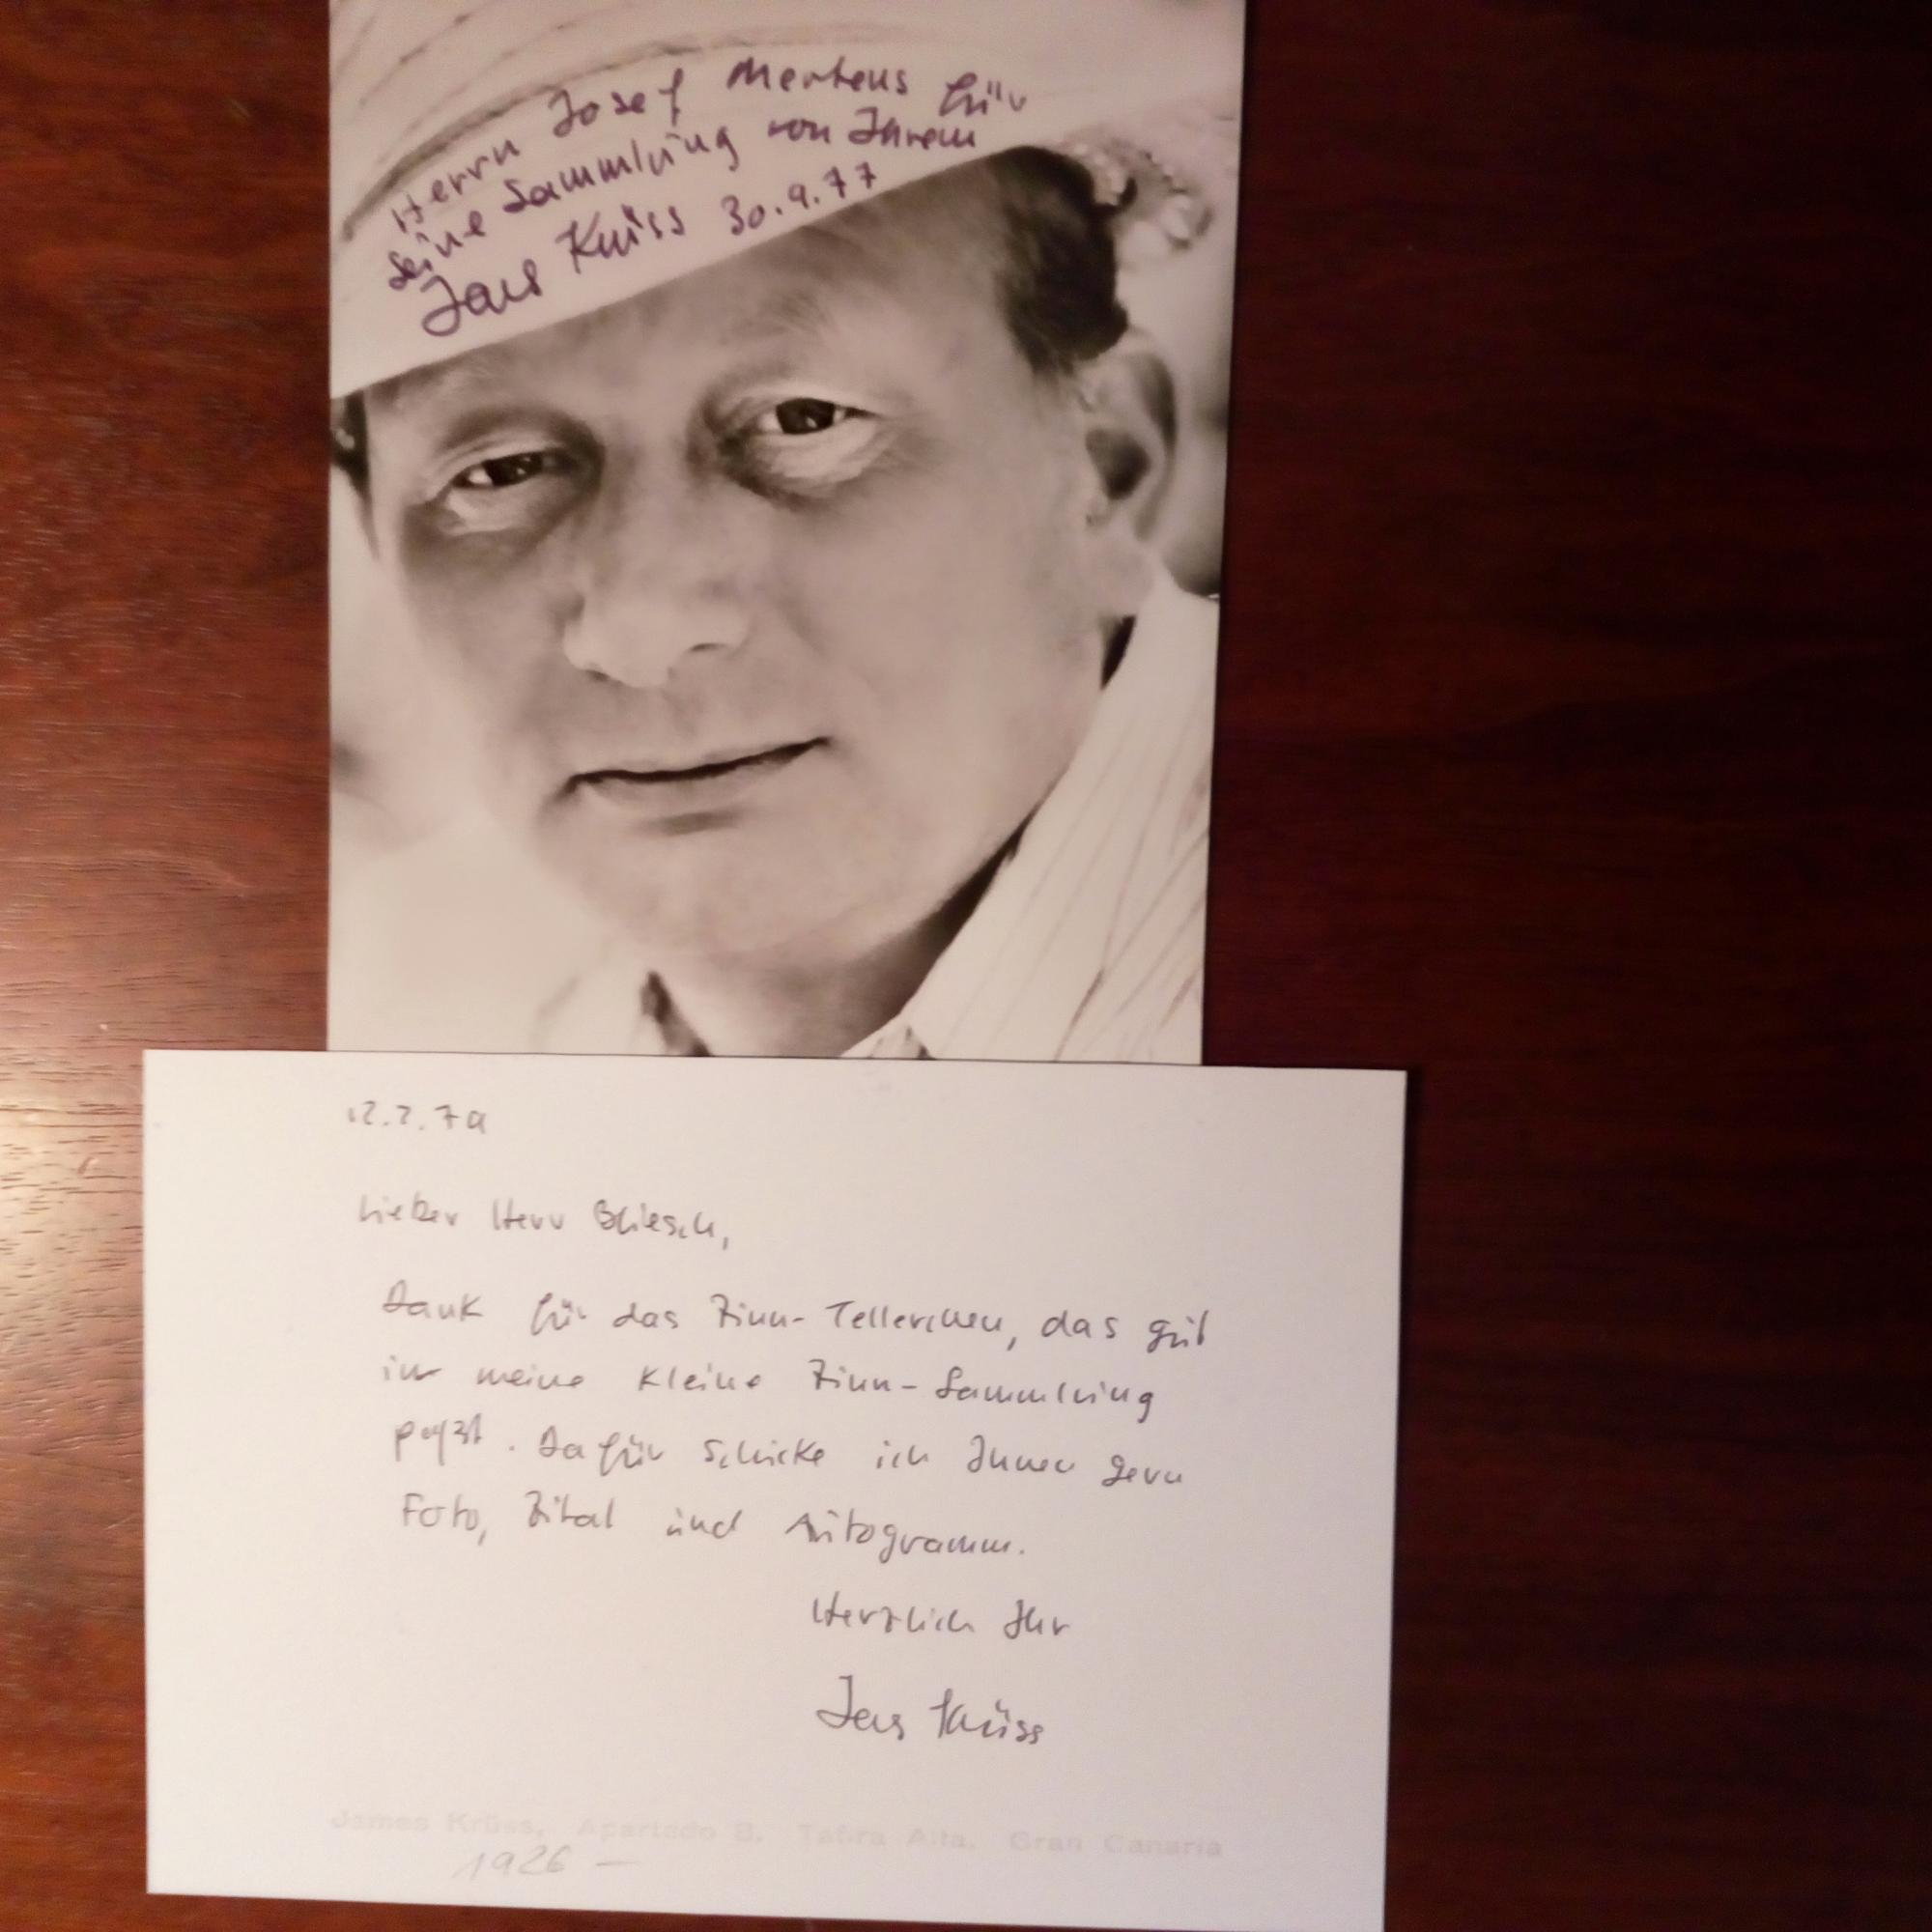 Herrn Josef Mertens für
seine Sammlung von Ihrem
James Krüss 30.9.77
Lieber Herr
Dank für das Zinn-Tellerchen, das gut
in meine kleine Zinn-Sammlung
paßt. Dafür schicke ich Ihnen gern
Foto, Zitat und Autogramm.
Herzlich Ihr
James Krüss
James Krüss, Apartado 8, Tafira Alta, Gran Canaria
1926 –